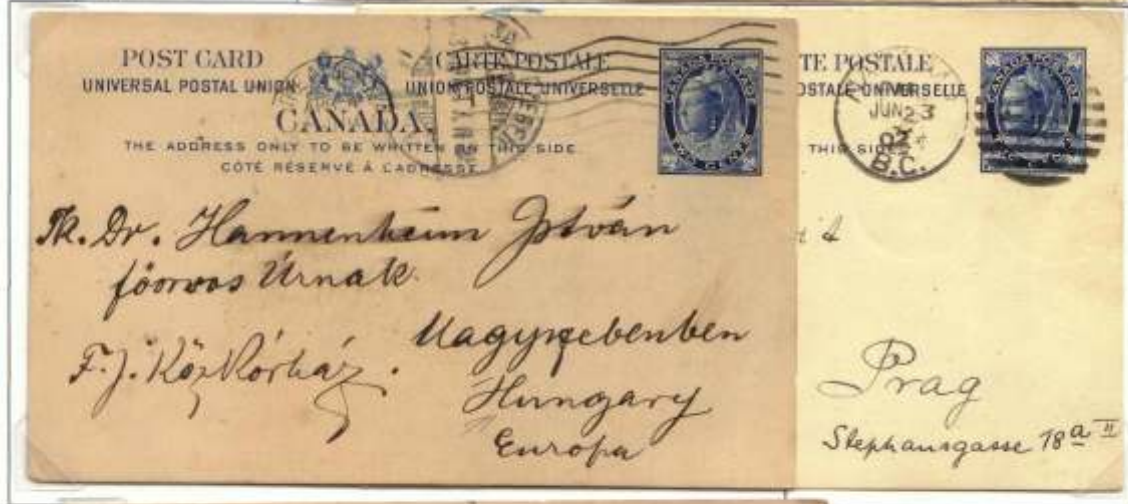 POST CARD CARTE POSTALE
UNIVERSAL POSTAL UNION UNION POSTALE UNIVERSELLE
CANADA.
THE ADDRESS ONLY TO BE WRITTEN ON THIS SIDE.
COTÉ RÉSERVÉ À L'ADRESSE
CANADA POSTAGE
TWO CENTS
Tk. Dr. Hannenheim István
főorvos Úrnak
F. J. Köz Kórház.
Nagyszebenben
Hungary
Europa
TE POSTALE
OSTALE UNIVERSELLE
THIS SIDE
CANADA POSTAGE
JUN 23
B.C.
Prag
Stephansgasse 18a II